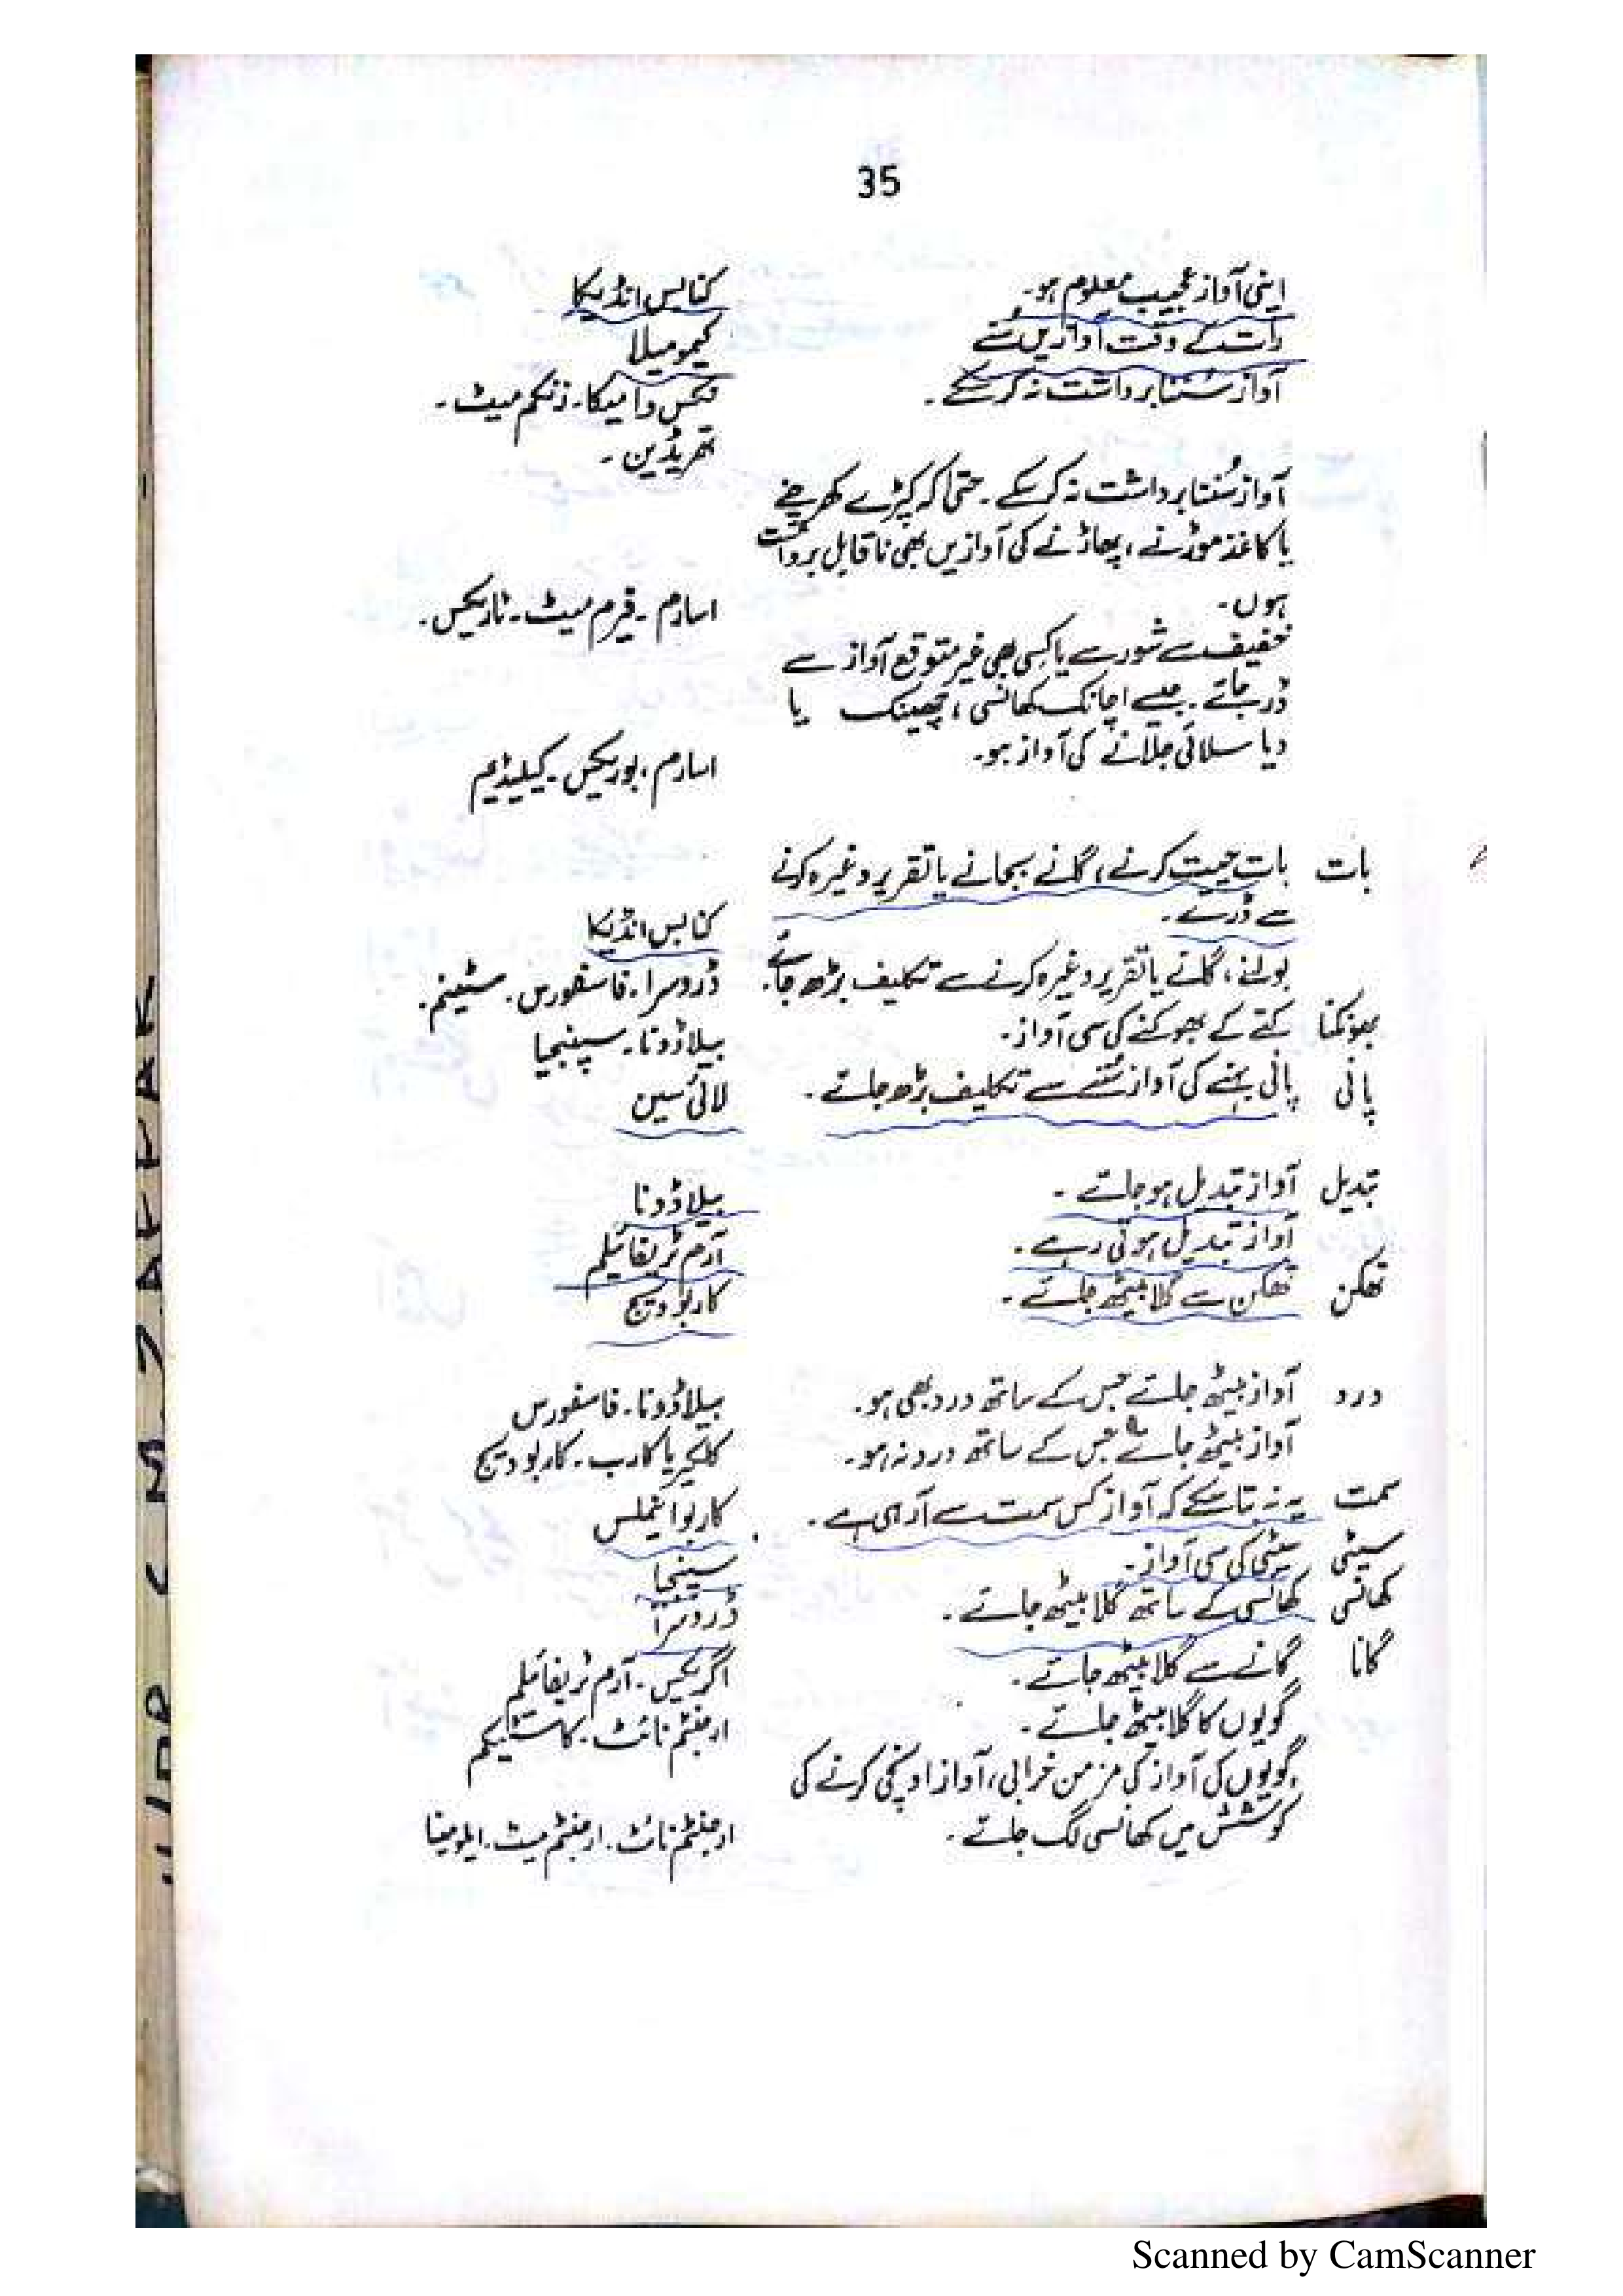 35
اپنی آواز عجیب معلوم ہو۔ کنابس انڈیکا
رات کے وقت آوازیں سُنے کیمومیلا
آواز سُننا برداشت نہ کر سکے۔ نکس وامیکا۔ زنکم میٹ۔
تھریڈین۔
آواز سُننا برداشت نہ کر سکے۔ حتیٰ کہ کپڑے کھرچنے
یا کاغذ موڑنے، پھاڑنے کی آوازیں بھی ناقابل برداشت
ہوں۔ اسارم۔ فیرم میٹ۔ ٹاریکس۔
خفیف سے شور سے یا کسی بھی غیر متوقع آواز سے
ڈر جائے۔ جیسے اچانک کھانسی، چھینک یا
دیا سلائی جلانے کی آواز ہو۔ اسارم، بوریکس۔ کیلیڈیم
بات بات چیت کرنے، گانے بجانے یا تقریر وغیرہ کرنے
سے ڈرے۔ کنابس انڈیکا
بولنے، گانے یا تقریر وغیرہ کرنے سے تکلیف بڑھ جائے۔ ڈروسرا۔ فاسفورس۔ سٹینم۔
بھونکنا کتے کے بھوکنے کی سی آواز۔ بیلاڈونا۔ سپنجیا
پانی پانی بہنے کی آواز سُننے سے تکلیف بڑھ جائے۔ لائی سین
تبدیل آواز تبدیل ہو جائے۔ بیلاڈونا
آواز تبدیل ہوتی رہے۔ آرم ٹریفائیلم
تھکن تھکن سے گلا بیٹھ جائے۔ کاربوویج
درد آواز بیٹھ جائے جس کے ساتھ درد بھی ہو۔ بیلاڈونا۔ فاسفورس
آواز بیٹھ جائے جس کے ساتھ درد نہ ہو۔ کلکیریا کارب۔ کاربوویج
سمت یہ نہ بتا سکے کہ آواز کس سمت سے آ رہی ہے۔ کاربو انیملس
سیٹی سیٹی کی سی آواز۔ سپنجیا
کھانسی کھانسی کے ساتھ گلا بیٹھ جائے۔ ڈروسرا
گانا گانے سے گلا بیٹھ جائے۔ اگریکس۔ آرم ٹریفائیلم
گویوں کا گلا بیٹھ جائے۔ ارجنٹم نائٹ۔ کاسٹیکم
گویوں کی آواز کی مزمن خرابی، آواز اونچی کرنے کی
کوشش میں کھانسی لگ جائے۔ ارجنٹم نائٹ۔ ارجنٹم میٹ۔ ایلومینا
Scanned by CamScanner